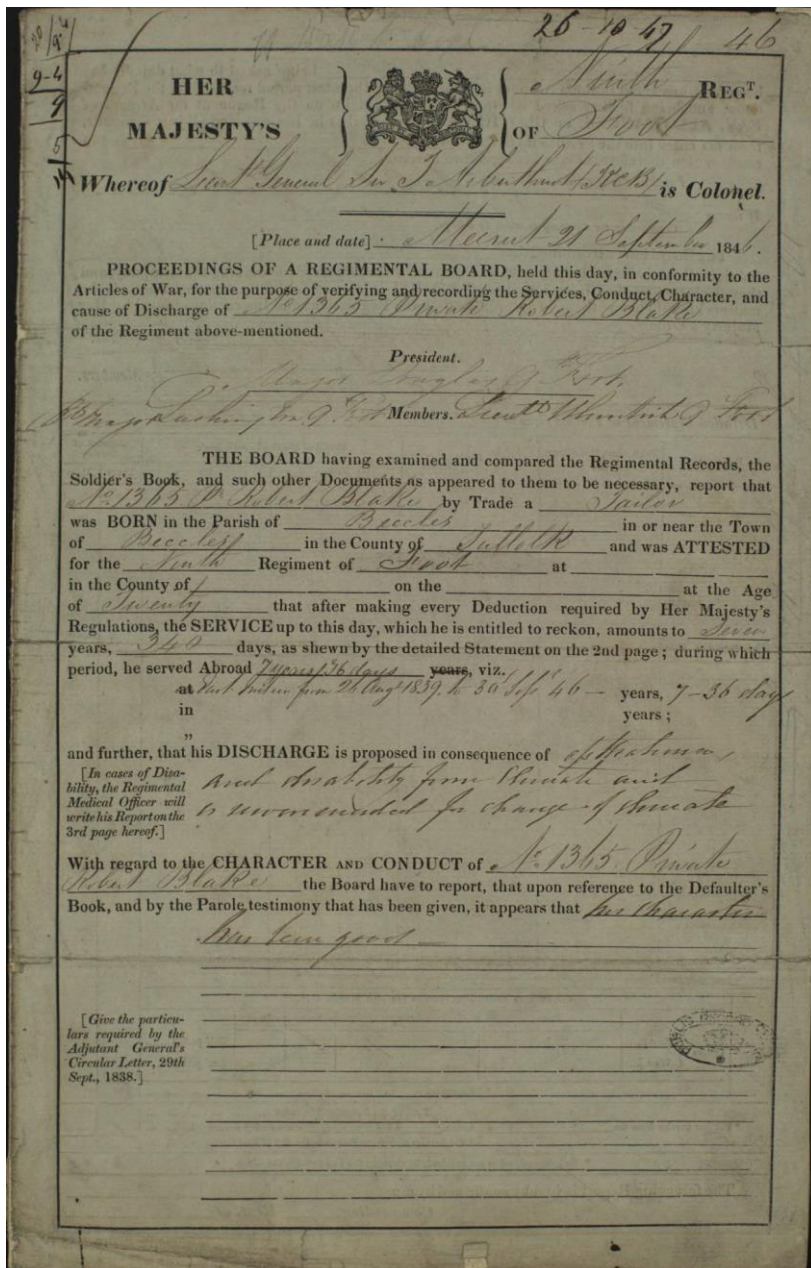 26-10-47 46
9-4
9
5
HER
MAJESTY'S
Ninth REGT.
OF Foot
Whereof Lieut General Sir T Arbuthnot (KCB) is Colonel.
[Place and date] Meerut 21 September 1846.
PROCEEDINGS OF A REGIMENTAL BOARD, held this day, in conformity to the
Articles of War, for the purpose of verifying and recording the Services, Conduct, Character, and
cause of Discharge of No 1365 Private Robert Blake
of the Regiment above-mentioned.
President.
Major Douglas 9 Foot
Lushington 9 Foot Members. Lieut 9 Foot
THE BOARD having examined and compared the Regimental Records, the
Soldier's Book, and such other Documents as appeared to them to be necessary, report that
No 1365 Robert Blake by Trade a Tailor
was BORN in the Parish of Beccles in or near the Town
of Beccles in the County of Suffolk and was ATTESTED
for the Ninth Regiment of Foot at
in the County of on the at the Age
of Twenty that after making every Deduction required by Her Majesty's
Regulations, the SERVICE up to this day, which he is entitled to reckon, amounts to Seven
years, 340 days, as shewn by the detailed Statement on the 2nd page; during which
period, he served Abroad 7 years 36 days years, viz.
at from 26 Augt 1839 to 30 Sept 46 - years, 7-36 days
in years;
"
and further, that his DISCHARGE is proposed in consequence of
[In cases of Disability, the Regimental
Medical Officer will
write his Report on the
3rd page hereof.]
and disability from Climate and
is recommended for change of climate
With regard to the CHARACTER AND CONDUCT of No 1365 Private
Robert Blake the Board have to report, that upon reference to the Defaulter's
Book, and by the Parole testimony that has been given, it appears that his character
has been good
[Give the particu-
lars required by the
Adjutant General's
Circular Letter, 29th
Sept., 1838.]